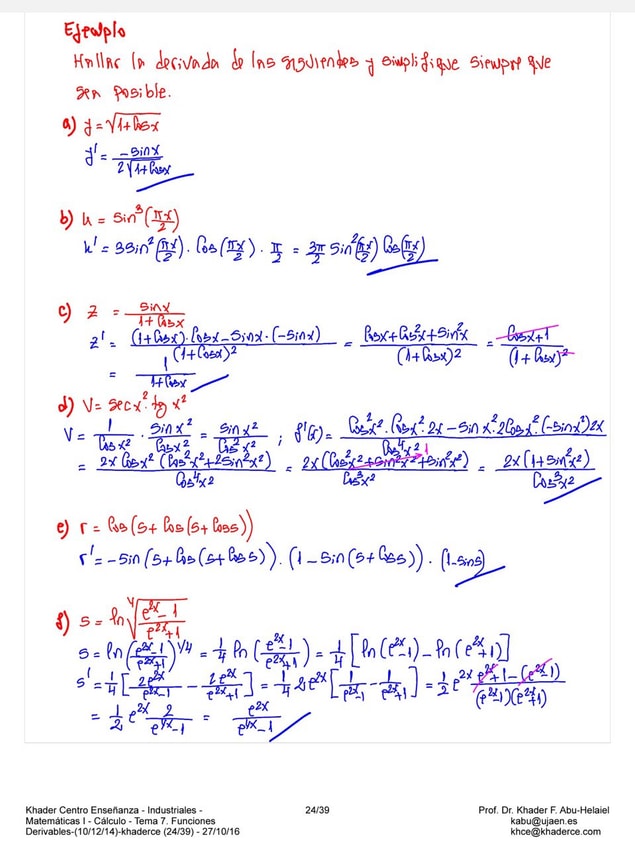 Ejemplo
Hallar la derivada de las siguientes y simplifique siempre que
sea posible.
a) y = √(1+Cosx)
y' = -sinx / 2√(1+Cosx)
b) u = Sin³(πx/2)
u' = 3Sin²(πx/2) · Cos(πx/2) · π/2 = 3π/2 Sin²(πx/2) Cos(πx/2)
c) z = sinx / (1+Cosx)
z' = ((1+Cosx)·Cosx - Sinx·(-Sinx)) / (1+Cosx)² = (Cosx+Cos²x+Sin²x) / (1+Cosx)² = (Cosx+1) / (1+Cosx)²
= 1 / (1+Cosx)
d) V = Secx²·tg x²
V = 1/Cosx² · Sinx²/Cosx² = Sinx²/Cos²x² ; f'(x) = (Cos²x²·Cosx²·2x - Sinx²·2Cosx²·(-Sinx²)2x) / Cos⁴x²
= 2x Cosx² (Cos²x²+2Sin²x²) / Cos⁴x² = 2x(Cos²x²+Sin²x²+Sin²x²) / Cos³x² = 2x(1+Sin²x²) / Cos³x²
e) r = Cos(s+Cos(s+Coss))
r' = -Sin(s+Cos(s+Coss)) · (1-Sin(s+Coss)) · (1-Sins)
f) s = ln ⁴√((e²ˣ-1)/(e²ˣ+1))
s = ln((e²ˣ-1)/(e²ˣ+1))^1/4 = 1/4 ln((e²ˣ-1)/(e²ˣ+1)) = 1/4 [ln(e²ˣ-1) - ln(e²ˣ+1)]
s' = 1/4 [2e²ˣ/(e²ˣ-1) - 2e²ˣ/(e²ˣ+1)] = 1/4 2e²ˣ [1/(e²ˣ-1) - 1/(e²ˣ+1)] = 1/2 e²ˣ (e²ˣ+1-(e²ˣ-1)) / (e²ˣ-1)(e²ˣ+1)
= 1/2 e²ˣ 2/(e⁴ˣ-1) = e²ˣ/(e⁴ˣ-1)
Khader Centro Enseñanza - Industriales -
Matemáticas I - Cálculo - Tema 7. Funciones
Derivables-(10/12/14)-khaderce (24/39) - 27/10/16
24/39
Prof. Dr. Khader F. Abu-Helaiel
kabu@ujaen.es
khce@khaderce.com